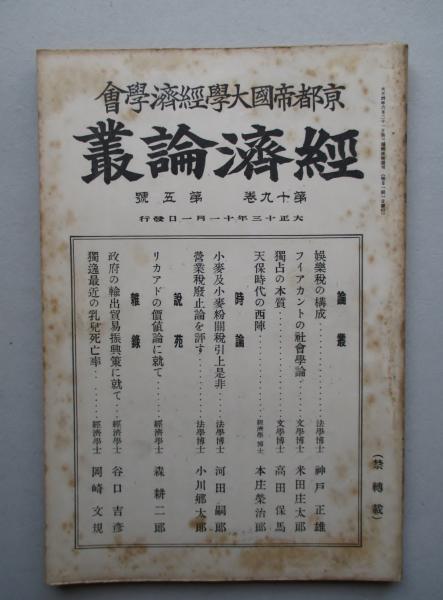 京都帝國大學經濟學會
經濟論叢
第十九卷 第五號
大正十三年十一月一日發行
論叢
娛樂稅の構成 法學博士 神戶正雄
フィアカントの社會學論 文學博士 米田庄太郎
獨占の本質 文學博士 高田保馬
天保時代の西陣 經濟學博士 本庄榮治郎
時論
小麥及小麥粉關稅引上是非 法學博士 河田嗣郎
營業稅廢止論を評す 法學博士 小川鄉太郎
說苑
リカアドの價値論に就て 經濟學士 森耕二郎
雜錄
政府の輸出貿易振興策に就て 經濟學士 谷口吉彥
獨逸最近の乳兒死亡率 經濟學士 岡崎文規
(禁轉載)